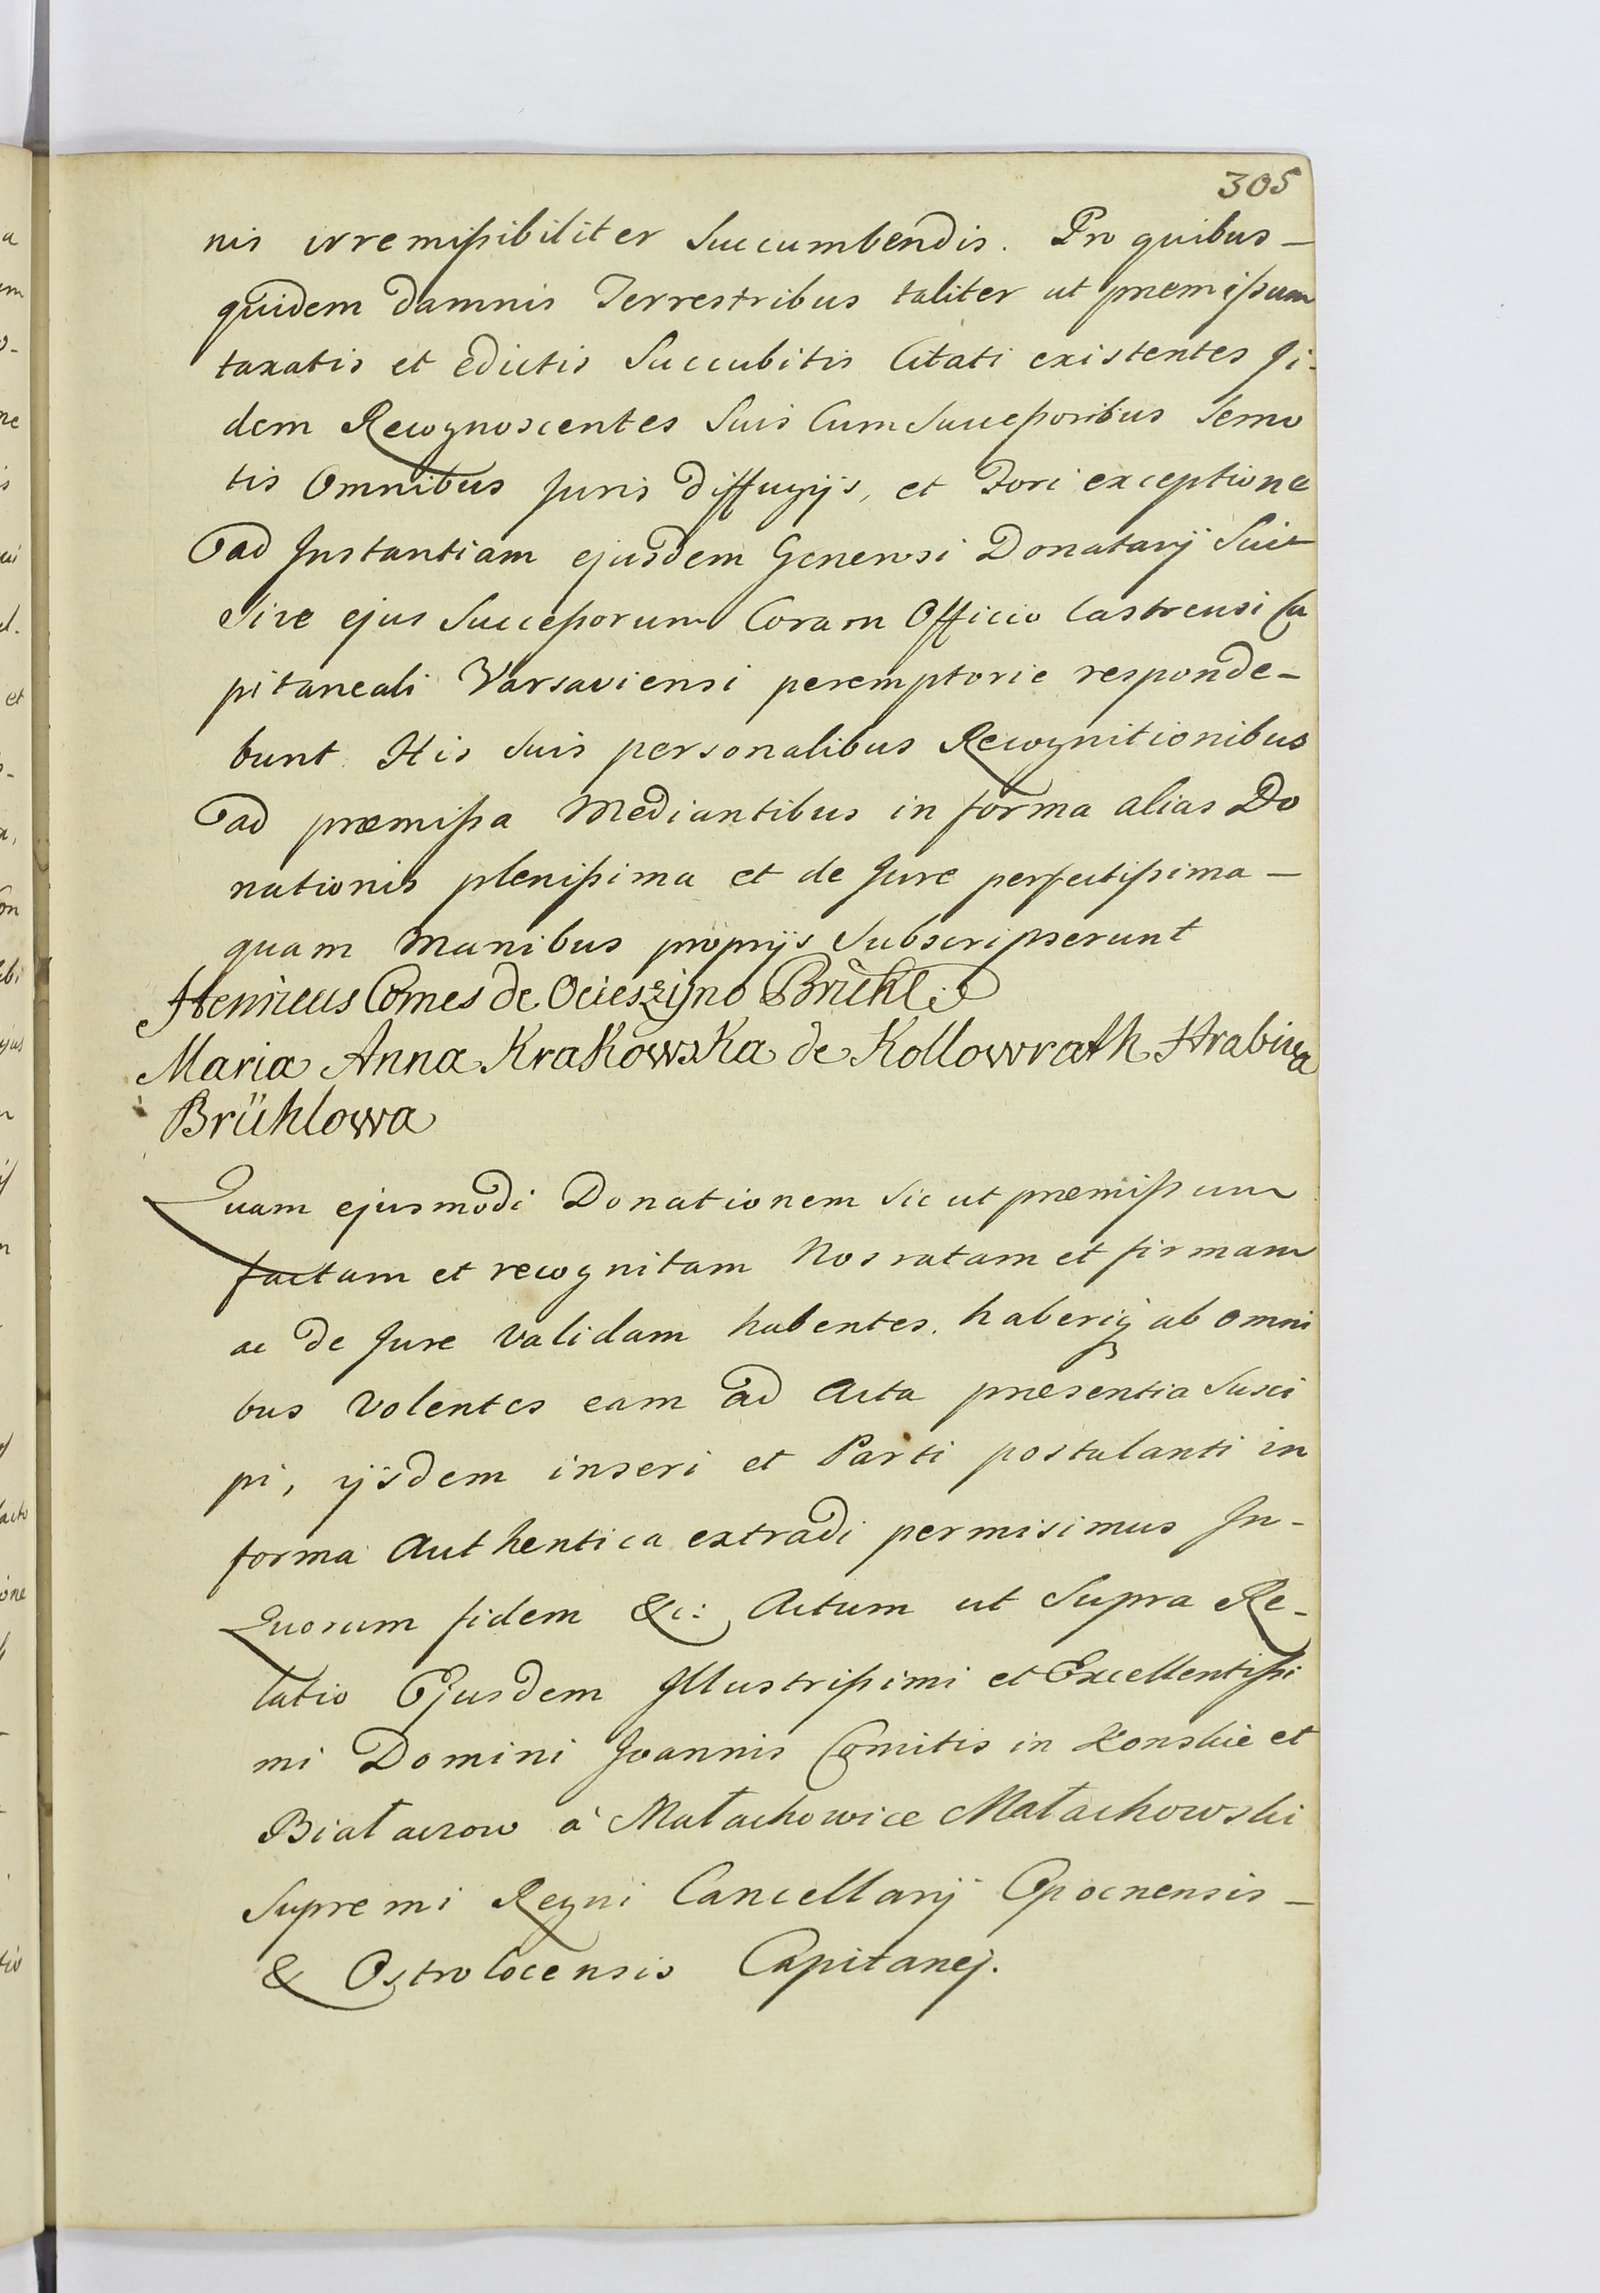 305
nis irremissibiliter Succumbendis. Pro quibus –
quidem damnis Terrestribus taliter ut præmissum
taxatis et edictis Succubitis Citati existentes Ii-
dem Recognoscentes Suis Cum Successoribus Semo
tis Omnibus Juris diffugijs, et Fori exceptione
ad Instantiam ejusdem Generosi Donatarij Sui
Sive ejus Successorum Coram Officio Castrensi Ca
pitaneali Varsaviensi peremptorie responde-
bunt His Suis personalibus Recognitionibus
ad præmissa Mediantibus in forma alias Do
nationis plenissima et de Jure perfectissima –
quam Manibus proprijs Subscripserunt
Henricus Comes de Ocieszyno Brühl
Maria Anna Krakowska de Kollowrath Hrabina
Brühlowa
Quam ejusmodi Donationem Sic ut præmissum
factam et recognitam Nos ratam et firmam
ac de Jure Validam habentes. haberiq ab omni
bus Volentes eam ad Acta præsentia Susci
pi, ijsdem inseri et Parti postulanti in
forma Authentica extradi permisimus In-
Quorum fidem &c: Actum ut Supra Re-
latio Ejusdem Illustrissimi et Excellentissi
mi Domini Joannis Comitis in Konskie et
Białaczow à Małachowice Małachowski
Supremi Regni Cancellarij Opocnensis –
& Ostrolocensis Capitanej.